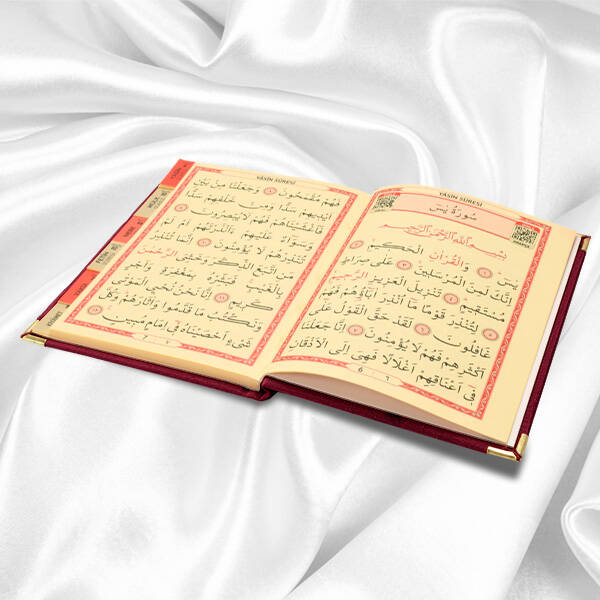 YÂSÎN SÛRESİ
سُورَةُ يٰسٓ
بِسْمِ اللّٰهِ الرَّحْمٰنِ الرَّحِيمِ
يٰسٓ ﴿١﴾ وَالْقُرْاٰنِ الْحَكِيمِ ﴿٢﴾
اِنَّكَ لَمِنَ الْمُرْسَلِينَ ﴿٣﴾ عَلٰى صِرَاطٍ
مُسْتَقِيمٍ ﴿٤﴾ تَنْزِيلَ الْعَزِيزِ الرَّحِيمِ ﴿٥﴾
لِتُنْذِرَ قَوْمًا مَٓا اُنْذِرَ اٰبَٓاؤُهُمْ فَهُمْ
غَافِلُونَ ﴿٦﴾ لَقَدْ حَقَّ الْقَوْلُ عَلٰٓى
اَكْثَرِهِمْ فَهُمْ لَا يُؤْمِنُونَ ﴿٧﴾ اِنَّا جَعَلْنَا
فِٓى اَعْنَاقِهِمْ اَغْلَالًا فَهِىَ اِلَى الْاَذْقَانِ
6 ٦
YÂSÎN SÛRESİ
فَهُمْ مُقْمَحُونَ ﴿٨﴾ وَجَعَلْنَا مِنْ بَيْنِ
اَيْدِيهِمْ سَدًّا وَمِنْ خَلْفِهِمْ سَدًّا
فَاَغْشَيْنَاهُمْ فَهُمْ لَا يُبْصِرُونَ ﴿٩﴾
وَسَوَٓاءٌ عَلَيْهِمْ ءَاَنْذَرْتَهُمْ اَمْ لَمْ
تُنْذِرْهُمْ لَا يُؤْمِنُونَ ﴿١٠﴾ اِنَّمَا تُنْذِرُ
مَنِ اتَّبَعَ الذِّكْرَ وَخَشِىَ الرَّحْمٰنَ
بِالْغَيْبِ فَبَشِّرْهُ بِمَغْفِرَةٍ وَاَجْرٍ
كَرِيمٍ ﴿١١﴾ اِنَّا نَحْنُ نُحْيِى الْمَوْتٰى
وَنَكْتُبُ مَا قَدَّمُوا وَاٰثَارَهُمْ وَكُلَّ
شَىْءٍ اَحْصَيْنَاهُ فِٓى اِمَامٍ مُبِينٍ ﴿١٢﴾
7 ٧